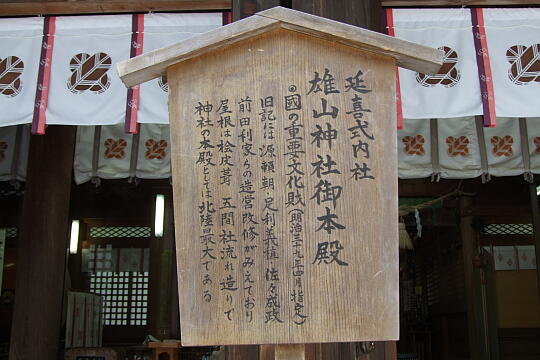 延喜式内社
雄山神社御本殿
◎國の重要文化財(明治三十九年四月指定)
旧記には源頼朝 足利義稙 佐々成政
前田利家らの造営改修がみえており
屋根は桧皮葺 五間社流れ造りで
神社の本殿としては北陸最大である